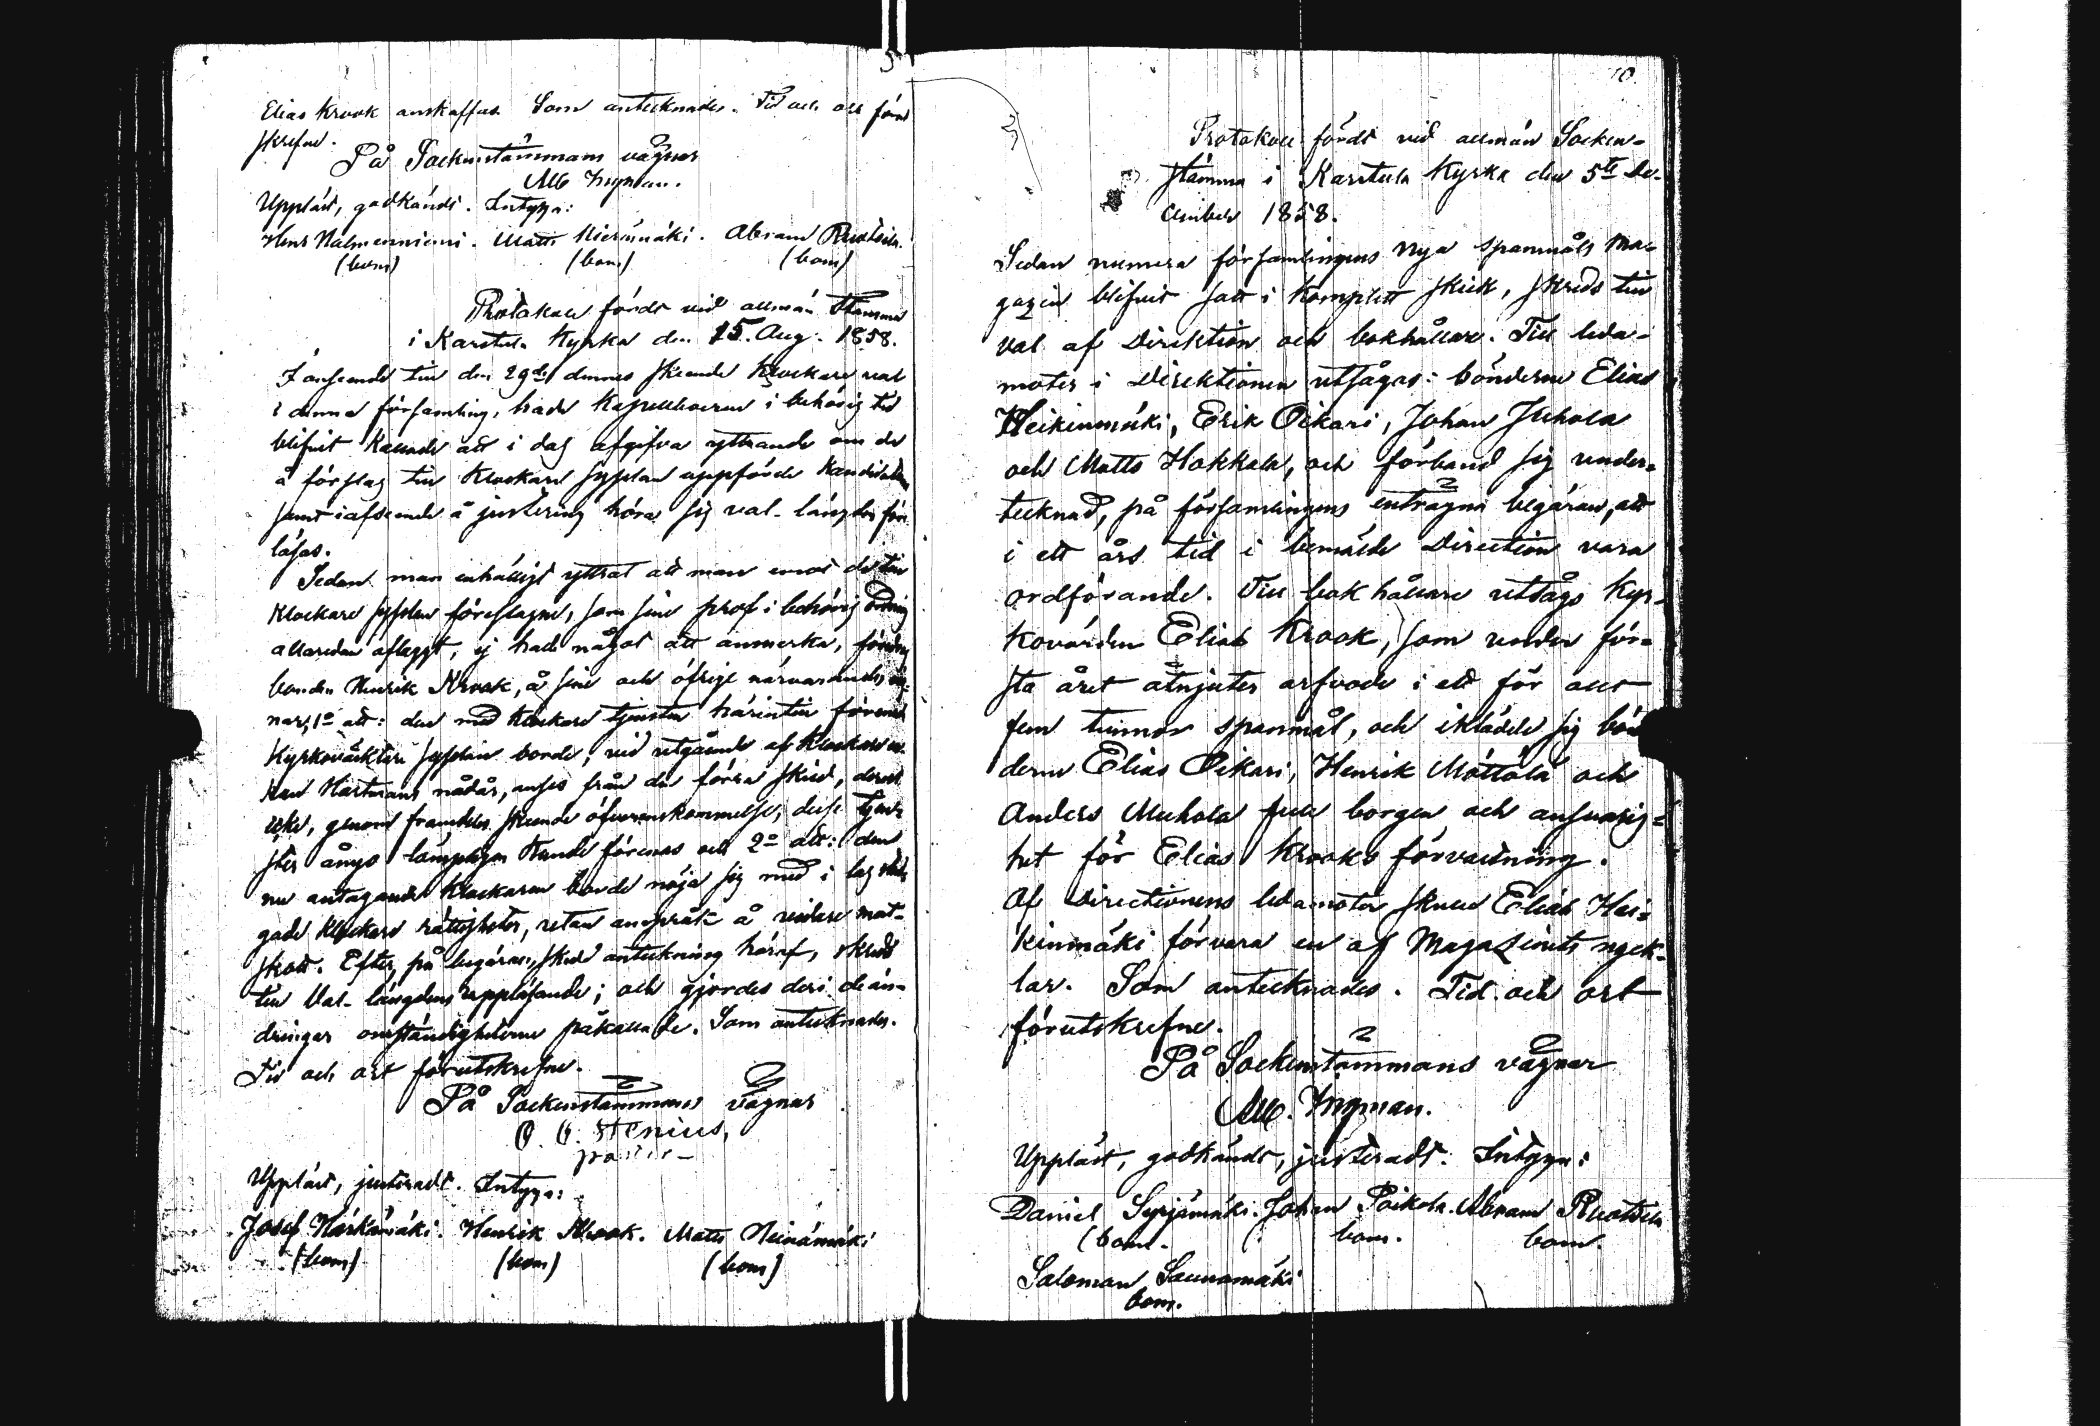 Elias Krook anskaffas. Som antecknades. Tid och ort föru
skrefne.
På Sockenstämmans vägnar
Ingman.
Uppläst, godkändt. Intyga:
Matts Abram Ruotsila.
(bom) (bom) (bom)
Protokoll fördt vid allmän Stämma
i Karstula Kyrka den 15. Aug. 1858.
I anseende till den 29de dennes skeende Klockare val
i denna församling, hade Kapellboerne i behörig tid
blifvit kallade att i dag afgifva yttrande om de
å förslag till Klockare sysslan uppförde Kandidater
samt i afseende å justering höra sig val-längden före
läsas.
Sedan man enhälligt yttrat att man emot de till
Klockare sysslan föreslagne, som sine prof i behörig ordning
allaredan aflaggt, ej hade något att anmerka,
bonden Henrik Krook, å sine och öfrige närvarandes väg-
nar, 1o att: den med Klockare tjensten härintill förenade
Kyrkoväktare sysslan borde, vid utgående af Klockare en-
kan Hartmans nådår, anses från den förra skild,
genom framdeles skeende öfverenskommelse, dessa tjen-
ster ånyo lämpligen kunde förenas och 2o att: den
nu antagande Klockaren borde nöja sig med i lag stad-
gade Klockare rättigheter, utan anspråk å vidare mat-
skott. Efter, på begäran, skedd anteckning häraf, skreds
till Val-längdens uppläsande; och gjordes deri de än-
dringar omständigheterne påkallade. Som antecknades.
Tid och ort förutskrefne.
På Sockenstämmans vägnar
Stenius,
Uppläst, justeradt. Intyga:
Josef Härkämäki. Henrik Krook. Matts Heinämäki
(bom) (bom) (bom)
10.
Protokoll fördt vid allmän Socken-
stämma i Karstula Kyrka den 5te De-
cember 1858.
Sedan numera församlingens nya spannmåls Ma-
gazin blifvit satt i komplett skick, skreds till
val af Direktion och bokhållare. Till leda-
moter i Direktionen uttågas: bönderne Elias
Heikinmäki, Erik Oikari, Johan Juhola
och Matts Hokkala, och förband sig under-
tecknad, på församlingens enträgna begäran, att
i ett års tid i bemälde Direction vara
ordförande. Till bokhållare uttågs Kyr-
kovärden Elias Krook, som under för-
sta året åtnjuter arfvode i ett för allt
fem tunnor spannmål, och iklädde sig bön
derne Elias Oikari, Henrik Möttölä och
Anders Muhola full borgen och ansvarig-
het för Elias Krooks förvaltning.
Af Directionens ledamoter skulle Elias Hei-
kinmäki förvara en af Magazinets nyck-
lar. Som antecknades. Tid och ort
förutskrefne.
På Sockenstämmans vägnar
Ingman.
Uppläst, godkändt, justeradt. Intyga:
Daniel Syrjämäki. Johan Poikola. Abram Ruotsila
(bom. bom. bom.
Salomon Saunamäki
bom.